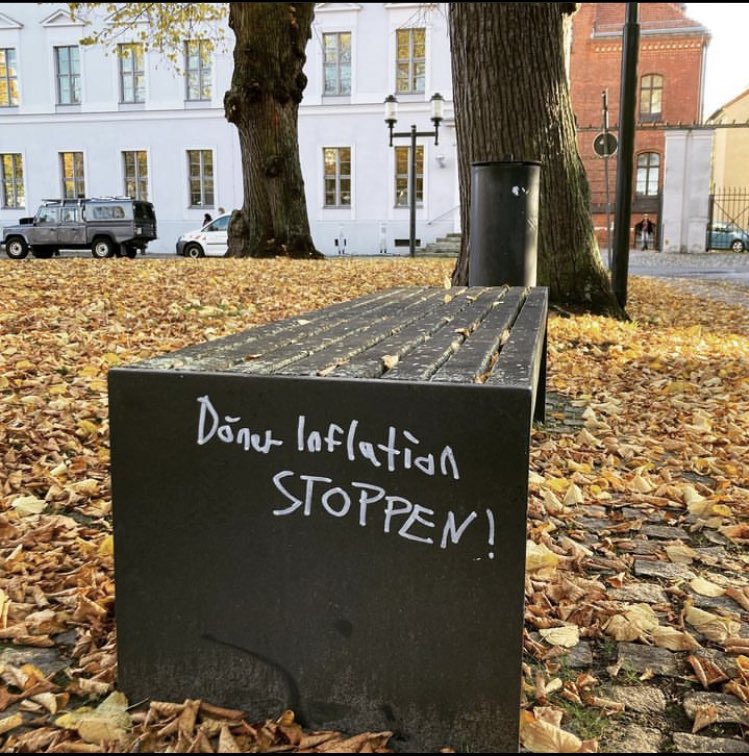 Döner Inflation
STOPPEN!